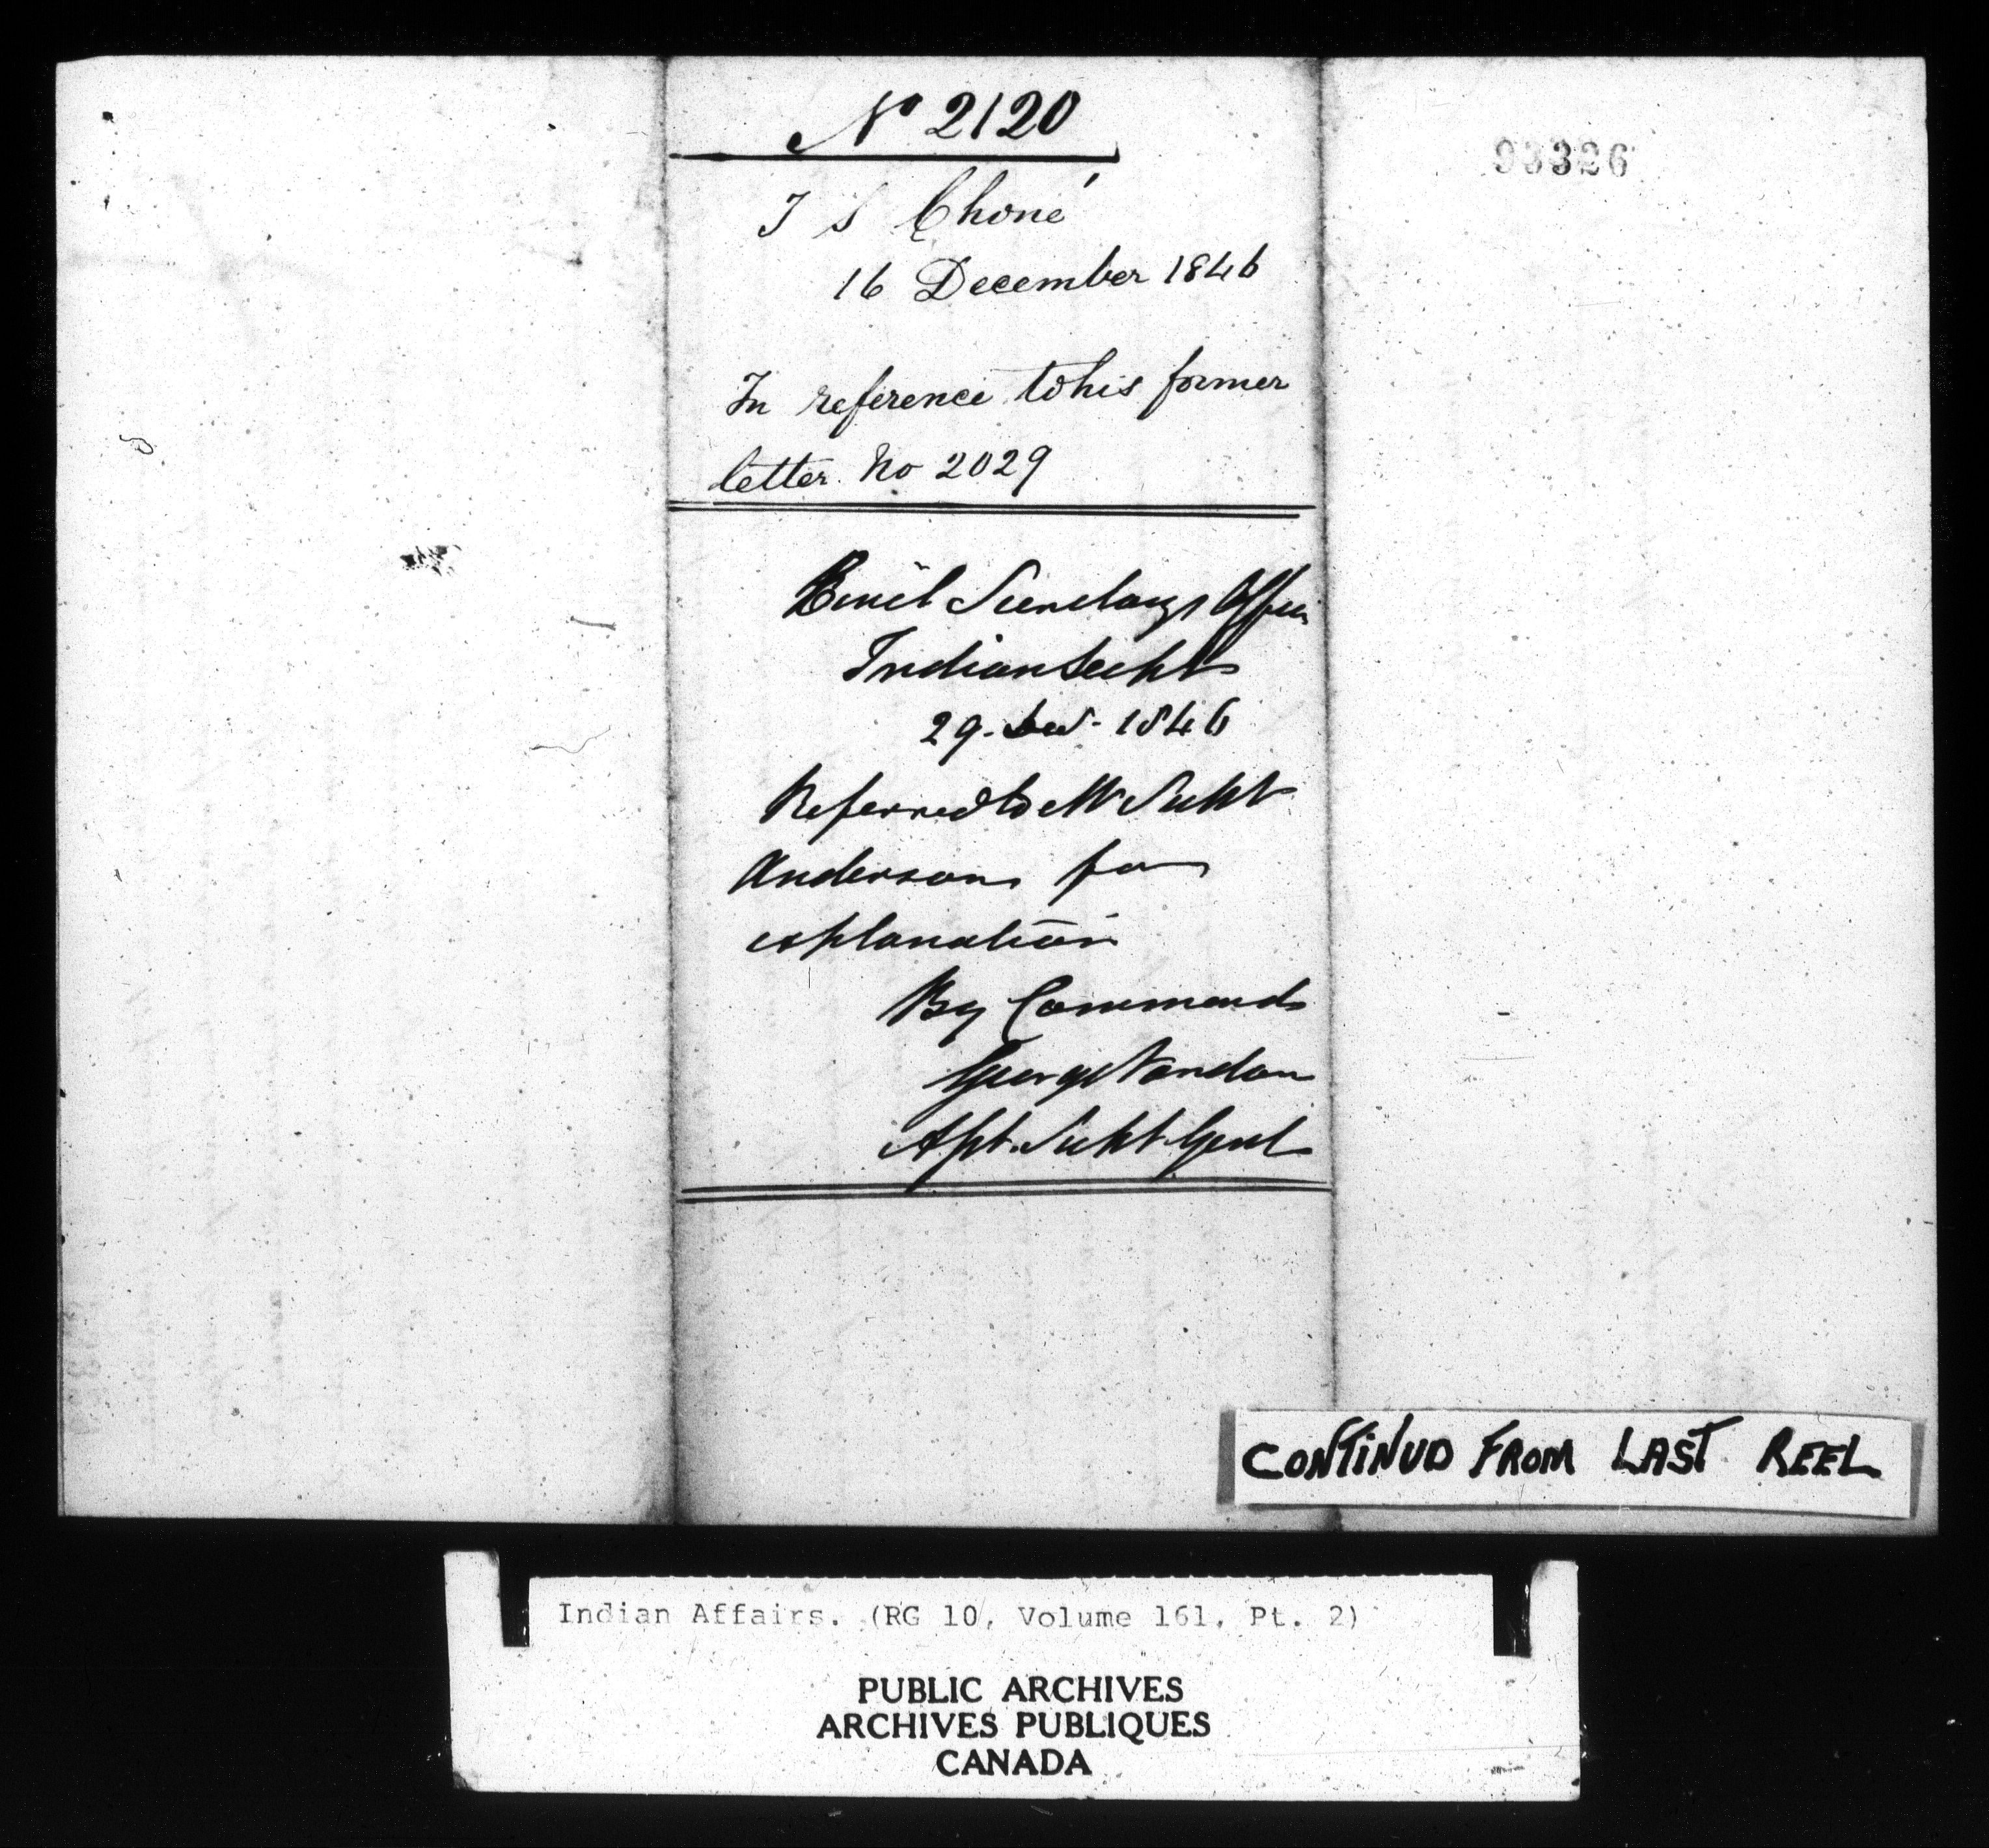 No 2120
93326
J S Choné
16 December 1846
In reference to his former
letter No 2029
Civil Secretarys Office
Indian Dept
29. Dec. 1846
Referred to Mr Supt
Anderson for
explanation
By Command
George Vardon
Asst. Supt. Genl
CONTINUD FROM LAST REEL
Indian Affairs. (RG 10, Volume 161, Pt. 2)
PUBLIC ARCHIVES
ARCHIVES PUBLIQUES
CANADA